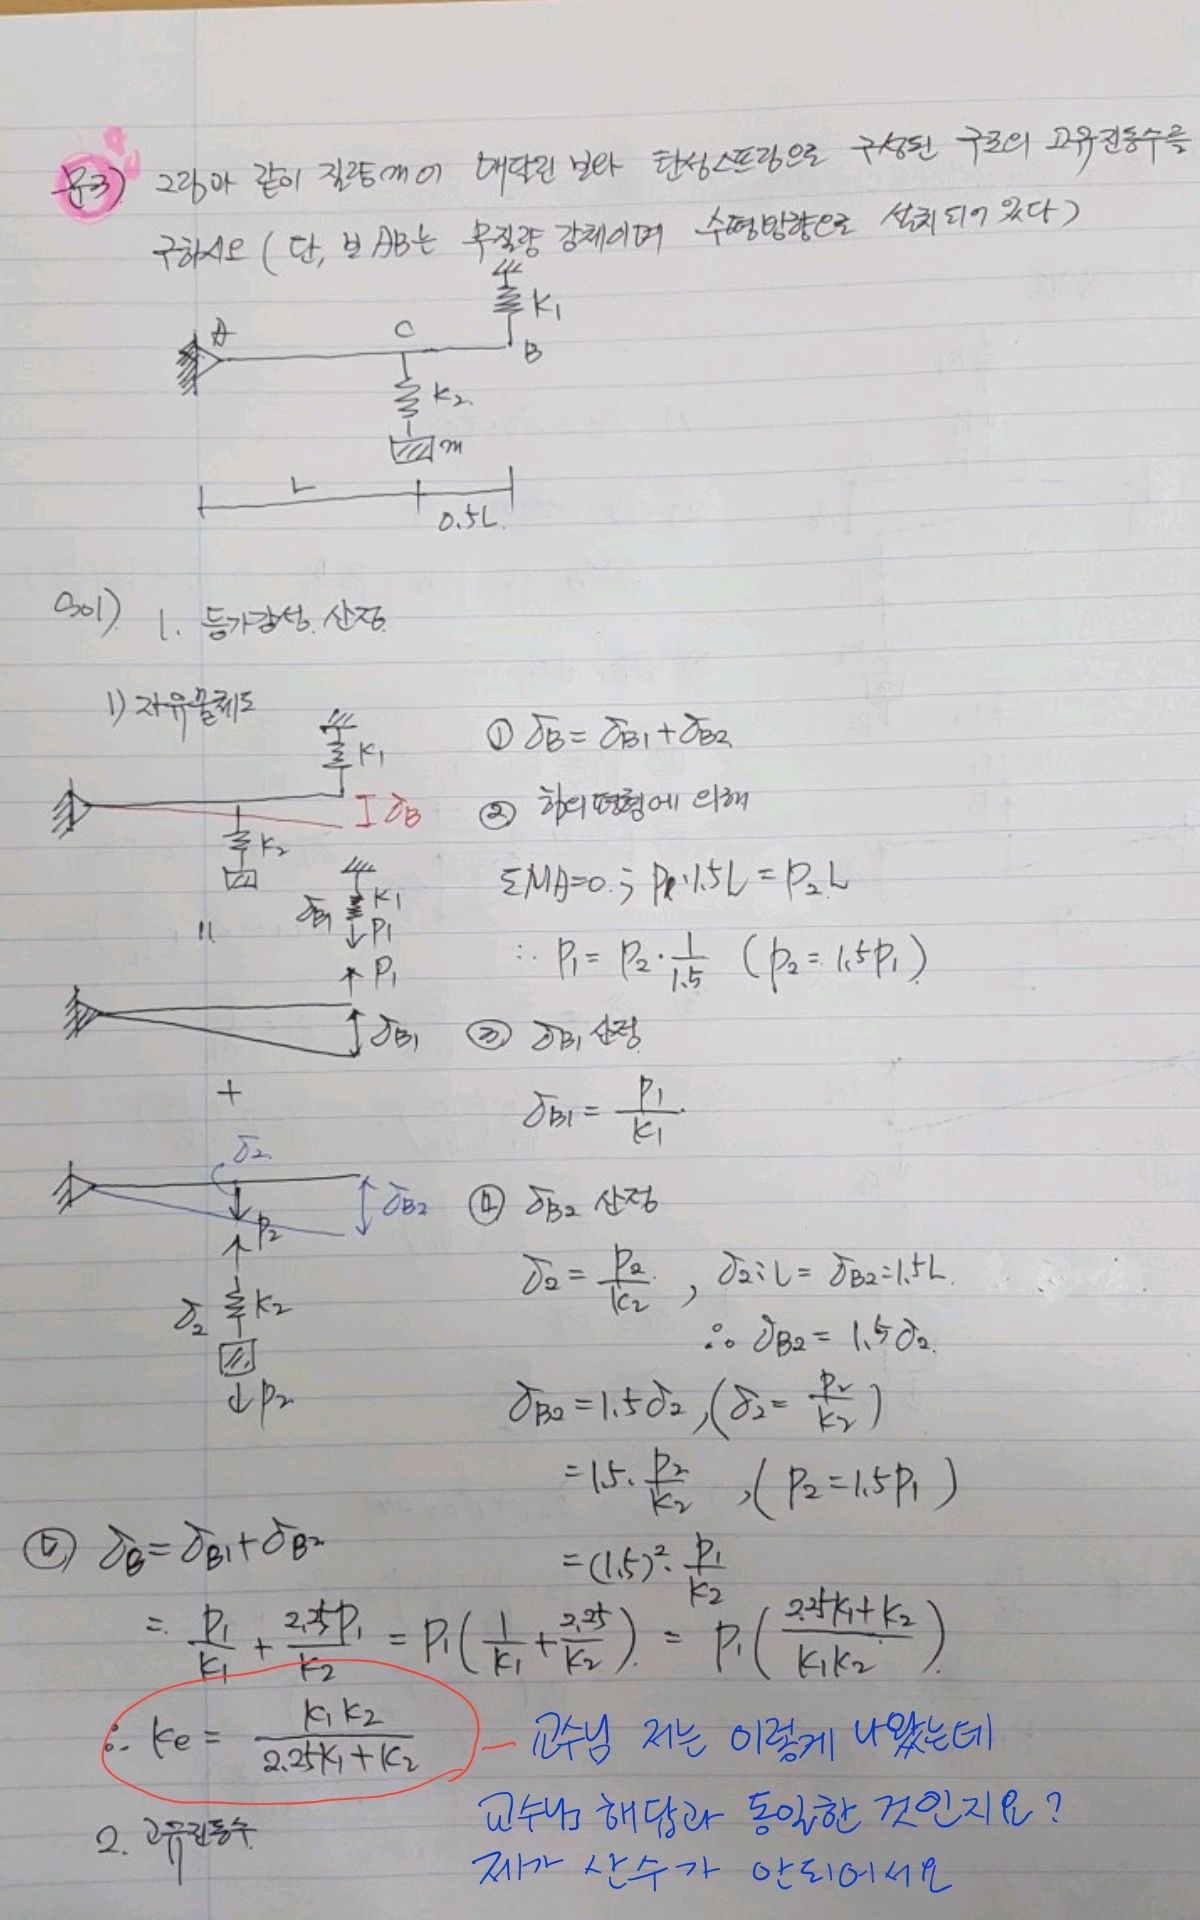 문3) 그림과 같이 질량m이 매달린 보와 탄성스프링으로 구성된 구조의 고유진동수를
구하시오 (단, 보 AB는 무질량 강체이며 수평방향으로 설치되어 있다)
K1
A
C
B
K2
m
L
0.5L
sol) 1. 등가강성 산정
1) 자유물체도
K1
① δB = δB1 + δB2
δB
② 힘의평형에 의해
K2
ΣMA=0 ; P1·1.5L = P2L
δB1 K1
P1
∴ P1 = P2 · 1/1.5 (P2 = 1.5P1)
P1
δB1
③ δB1 산정
+
δB1 = P1/K1
δ2
δB2
④ δB2 산정
P2
δ2 = P2/K2 , δ2 : L = δB2 : 1.5L
δ2 K2
∴ δB2 = 1.5δ2
P2
δB2 = 1.5δ2, (δ2 = P2/K2)
= 1.5 · P2/K2 , (P2 = 1.5P1)
= (1.5)² · P1/K2
⑤ δB = δB1 + δB2
= P1/K1 + 2.25P1/K2 = P1(1/K1 + 2.25/K2) = P1((2.25K1+K2)/K1K2)
∴ Ke = K1K2/(2.25K1+K2)
교수님 저는 이렇게 나왔는데
교수님 해답과 동일한 것인지요?
제가 산수가 안되어서요
2. 고유진동수